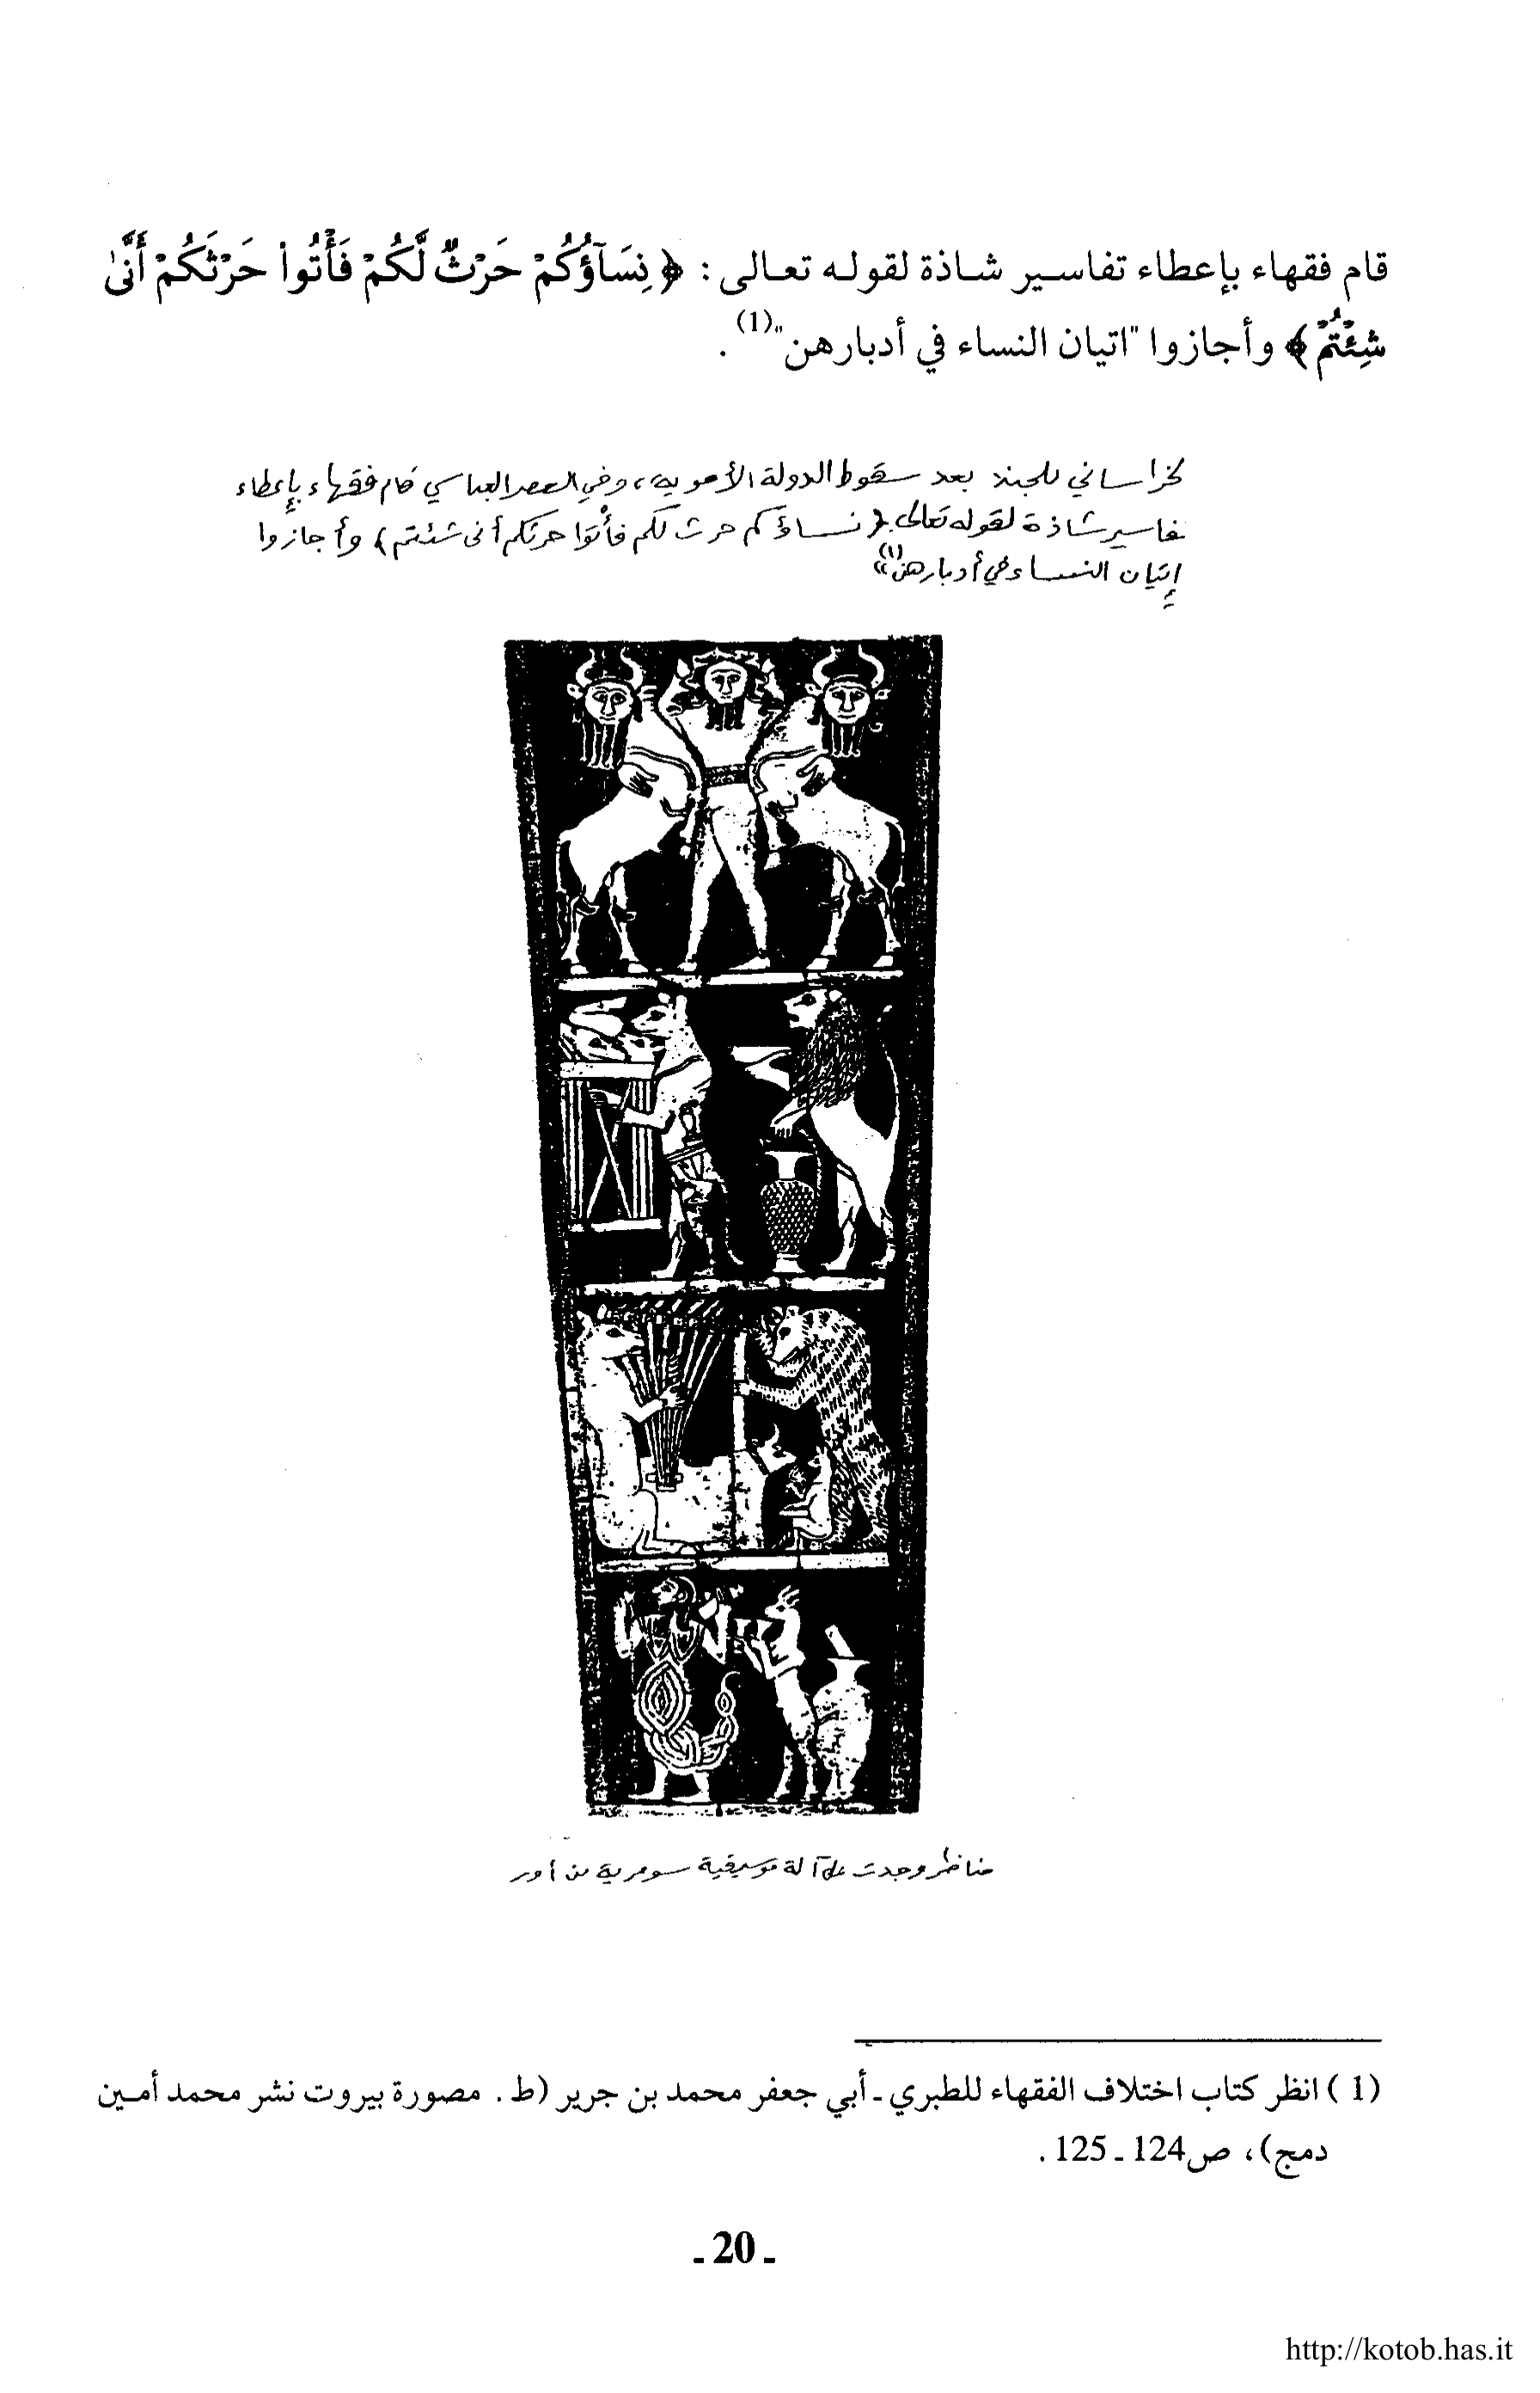 قام فقهاء بإعطاء تفاسير شاذة لقوله تعالى : ﴿ نِسَآؤُكُمْ حَرْثٌ لَّكُمْ فَأْتُوا حَرْثَكُمْ أَنَّىٰ
شِئْتُمْ ﴾ وأجازوا "اتيان النساء في أدبارهن"(1) .
لخراساني للجند بعد سقوط الدولة الأموية، وفي العصر العباسي قام فقهاء بإعطاء
تفاسير شاذة لقوله تعالى (نساؤكم حرث لكم فأتوا حرثكم أنى شئتم) وأجازوا
إتيان النساء في أدبارهن(1)"
مناظر وجدت على آلة موسيقية سومرية من أور
(1) انظر كتاب اختلاف الفقهاء للطبري ـ أبي جعفر محمد بن جرير (ط . مصورة بيروت نشر محمد أمين
دمج)، ص124 ـ 125 .
ـ 20 ـ
http://kotob.has.it